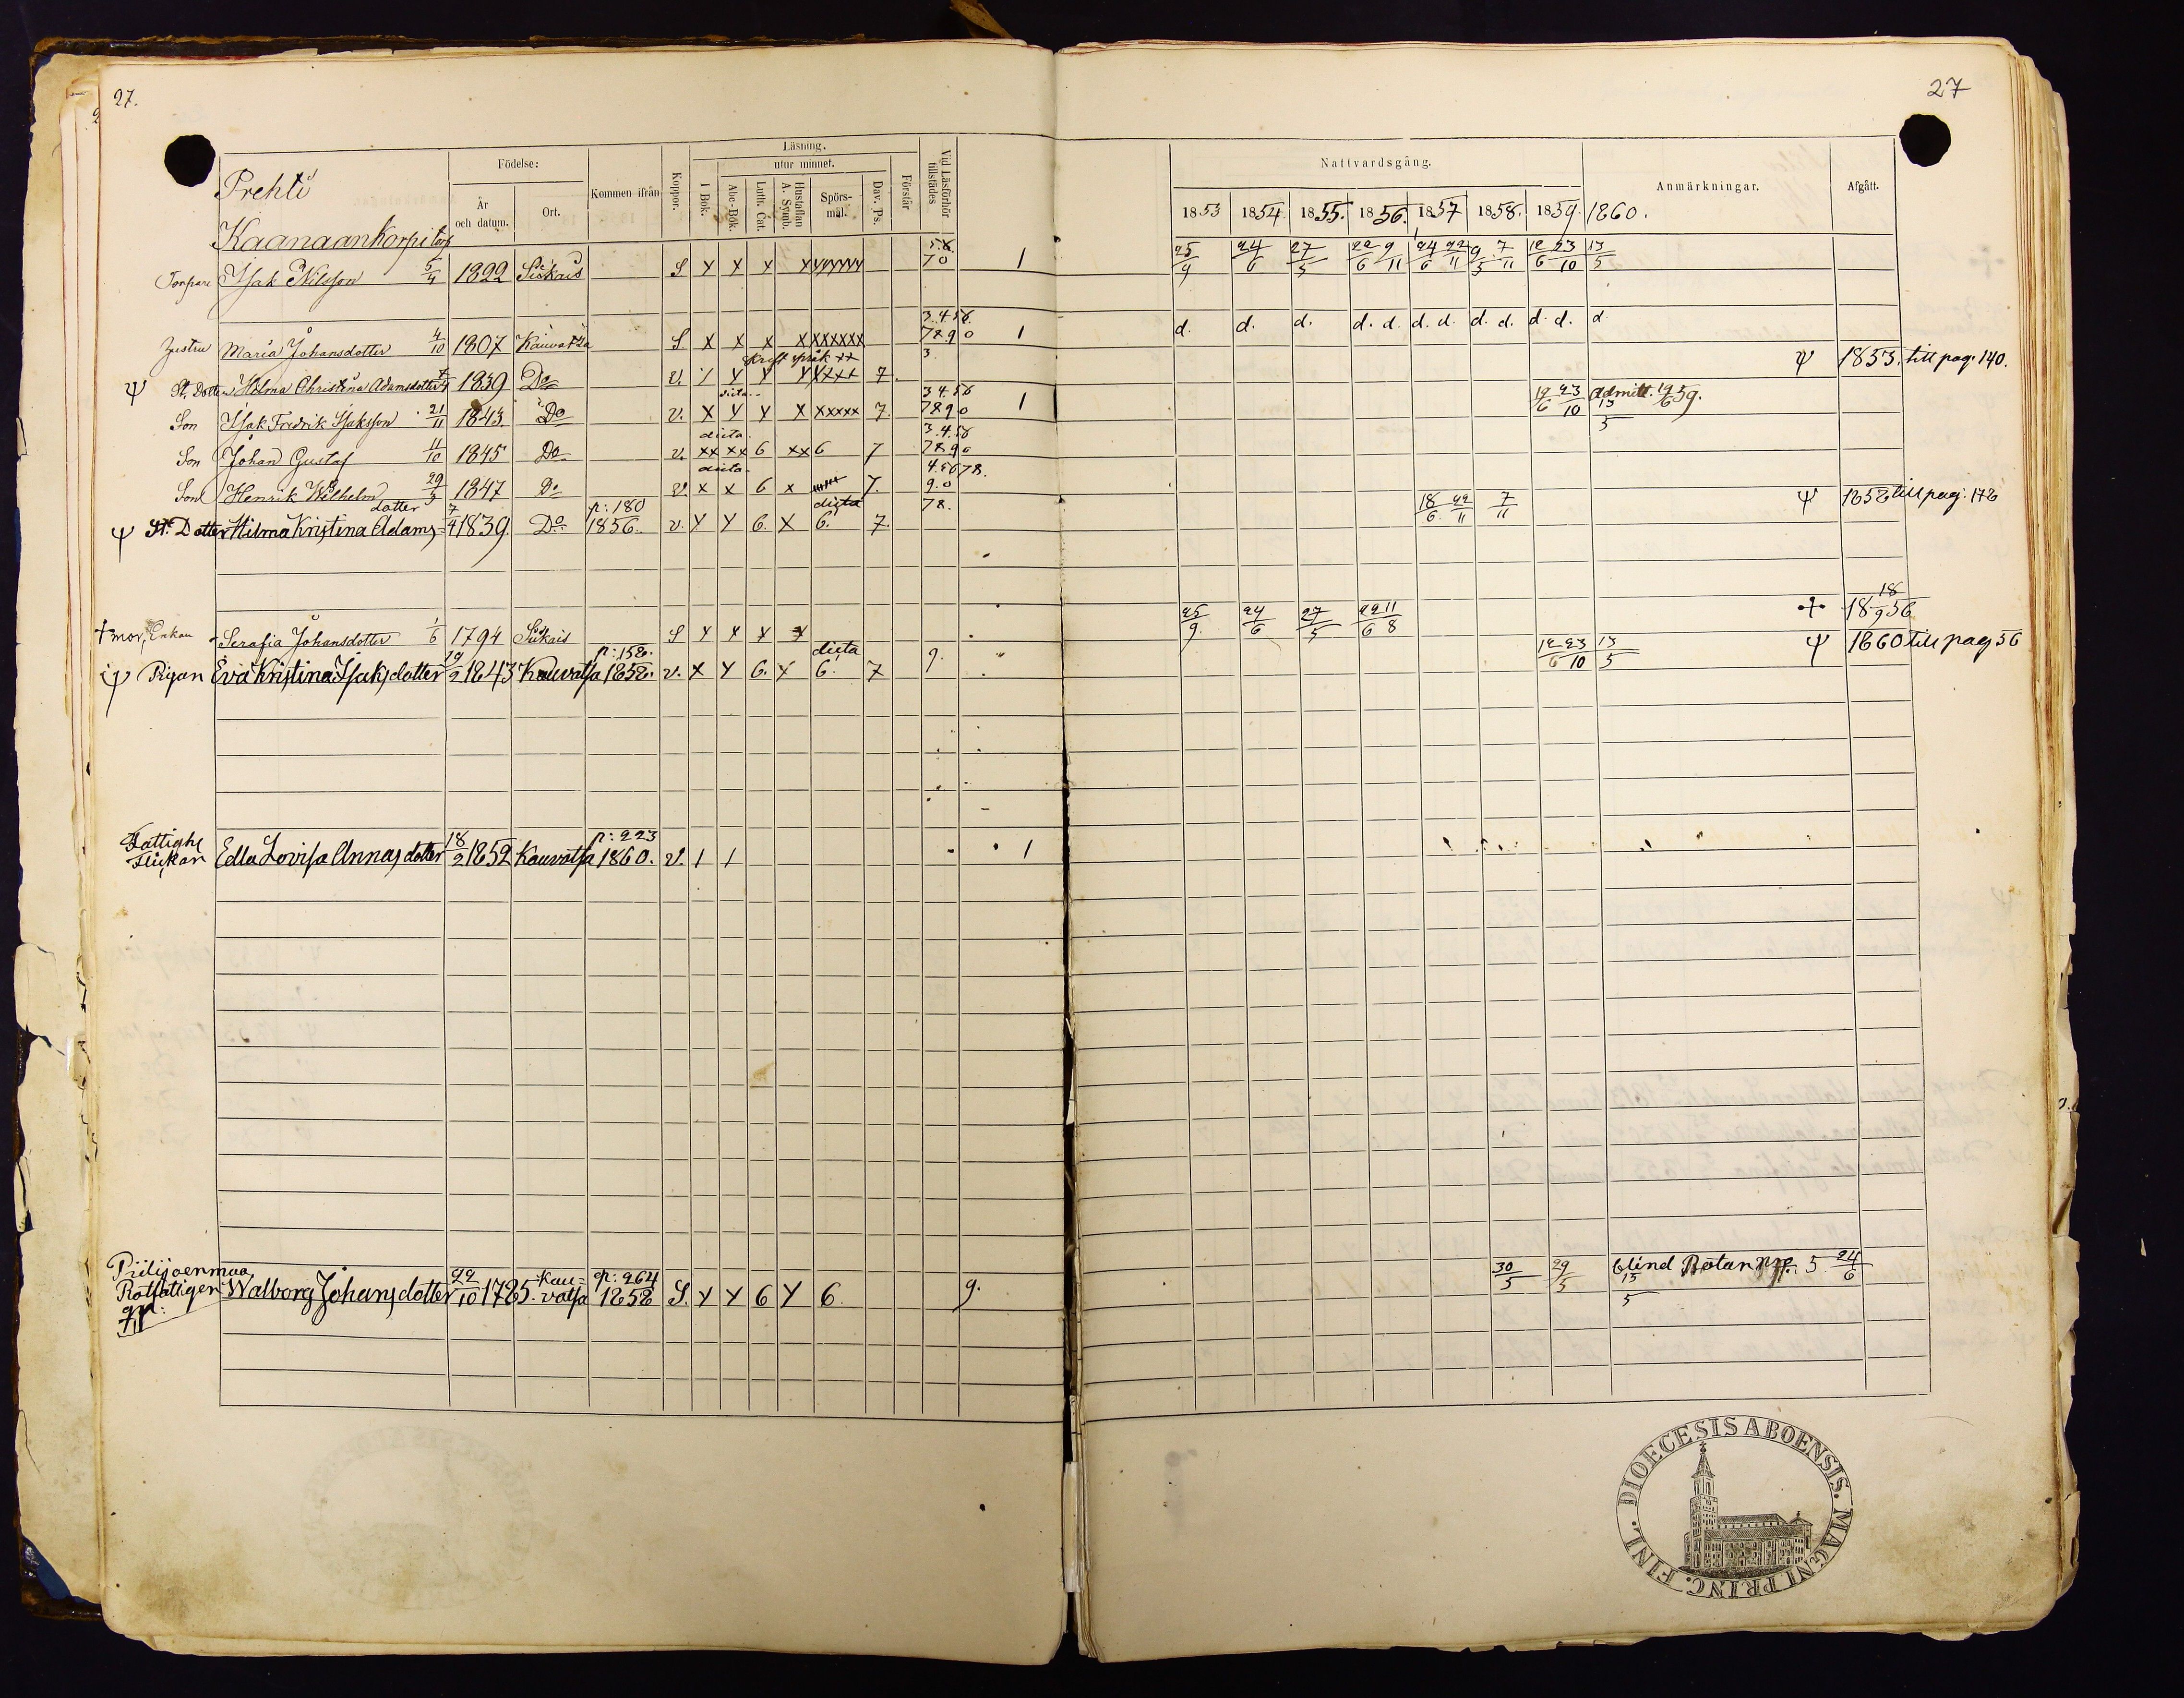 27.
27
Prehti
Kaanaankorpi torp
Födelse:
År och datum.
Ort.
Kommen ifrån
Koppor.
Läsning.
utur minnet.
I Bok.
Abc-Bok.
Luth. Cat.
Hustaflan A. Symb.
Spörsmål.
Dav. Ps.
Förstår
Vid Läsförhör tillstädes
Nattvardsgång.
1853 1854. 1855. 1856. 1857 1858. 1859. 1860.
Anmärkningar.
Afgått.
Torpare Isak Nilsson 5/4 1822 Siikais S Y X X X YYYYYY 5.8. 70 1 25/9 24/6 27/5 22/6 9/11 24/6 22/11 9/5 7/11 12/6 23/10 13/5
hustru Maria Johansdotter 4/10 1807 Kauvatsa S X X X X XXXXXX 3.4.58. 7890 1 d. d. d. d. d. d. d. d. d. d. d. d
Ψ St. Dotter Hilma Christina Adamsdotter 7/4 1839 Do v. Y Y Y 7. 3 Ψ 1853. till pag. 140.
Son Isak Fredrik Isaksson 21/11 1843. Do v. X Y Y X XXXXX 7. 34.58 7890 1 19/6 23/10 admitt. 19/6 59. 13/5
Son Johan Gustaf 11/10 1845 Do v. XX XX 6 XX 6 7 3.4.58 7890
Son Henrik Wilhelm 29/3 1847 Do v. X X 6 X 7. 4.5678. 9.0
Ψ St. Dotter Hilma Kristina Adamsdotter 7/4 1839. Do p: 180 1856. v. Y Y 6. X dicta 6. 7. 78. 18/6 22/11 7/11 Ψ 1858 till pag: 178
† mor, Enkan Serafia Johansdotter 1/6 1794 Siikais S Y X X X 25/9. 24/6 27/5 22/6 11/8 † 18 18/9 56
Ψ Pigan Eva Kristina Isaksdotter 1843 Kauvatsa p: 158. 1858. v. X Y 6. Y dicta 6. 7 9. 12/6 23/10 13/5 Ψ 1860 till pag 56
Fattighj Flickan Edla Lovisa Annasdotter 18/2 1852 Kauvatsa p: 223 1860. v. 1 1 1
Rotfattigen Walborg Johansdotter 22/10 1785. Kauvatsa p: 264 1858 S. Y Y 6 Y 6. 9. 30/5 29/5 13/5 blind 24/6
DIOECESIS ABOENSIS. MAGNI PRINC. FINL.